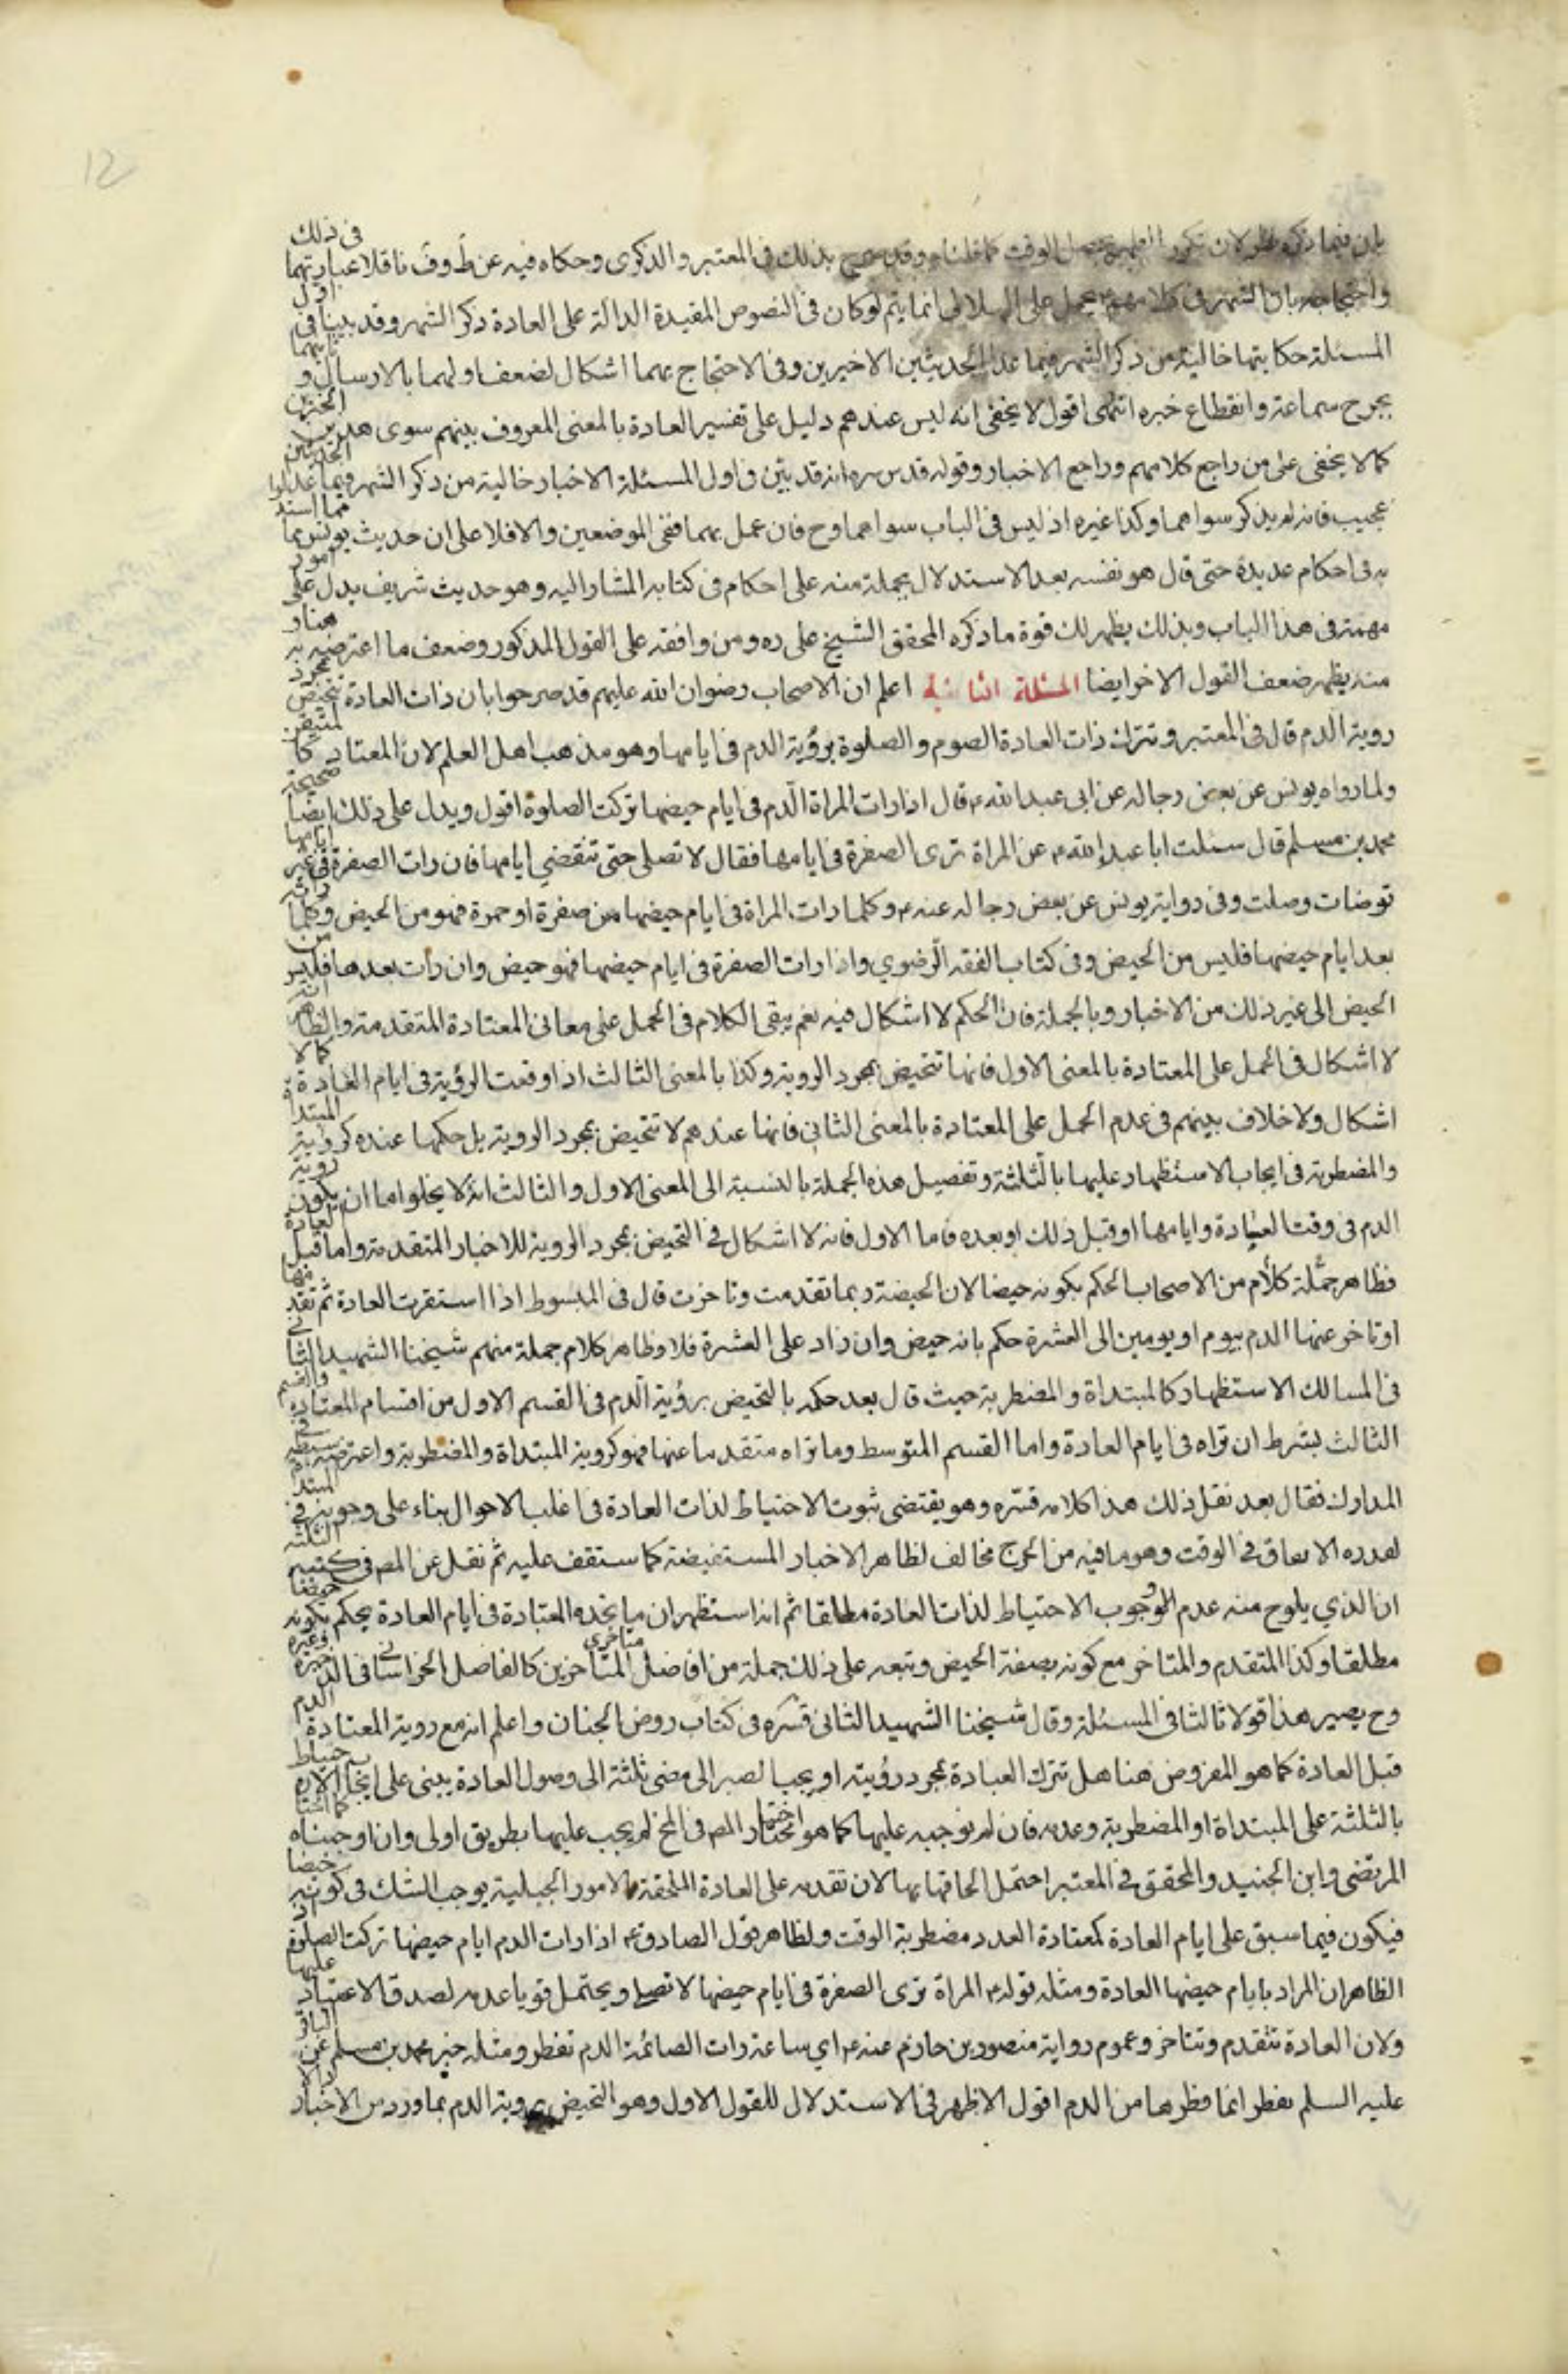 بان فيما ذكره نظر لان تكرر الطهر يحصل الوقت كما قلناه وقد صرح بذلك في المعتبر والذكرى وحكاه فيه عن ط وف ناقلا عبارتهما في ذلك
واحتجاجه بان الشهر في كلامهم ع يحمل على الهلالي انما يتم لو كان في النصوص المقيدة الدالة على العادة ذكر الشهر وقد بينا في اول
المسئلة حكايتها خالية من ذكر الشهر فيما عدا الحديثين الاخيرين وفي الاحتجاج بهما اشكال لضعف اولهما بالارسال و
بجرح سماعة وانقطاع خبره انتهى اقول لا يخفى انه ليس عندهم دليل على تفسير العادة بالمعنى المعروف بينهم سوى هذين الخبرين
كما لا يخفى على من راجع كلامهم وراجع الاخبار وقوله قدس سره انه قد بين في اول المسئلة الاخبار خالية من ذكر الشهر فيما عدا الحديثين
عجيب فانه لم يذكر سواهما وكذا غيره اذ ليس في الباب سواهما وح فان عمل بهما ففي الموضعين والا فلا على ان حديث يونس مما استدلوا
به في احكام عديدة حتى قال هو نفسه بعد الاستدلال بجملة منه على احكام في كتابه المشار اليه وهو حديث شريف يدل على امور
مهمة في هذا الباب وبذلك يظهر لك قوة ما ذكره المحقق الشيخ علي ره ومن وافقه على القول المذكور وضعف ما اعترضه به هنا و
منه يظهر ضعف القول الاخر ايضا المسئلة الثانية اعلم ان الاصحاب رضوان الله عليهم قد صرحوا بان ذات العادة تتحيض بمجرد
روية الدم قال في المعتبر وتترك ذات العادة الصوم والصلوة برؤية الدم في ايامها وهو مذهب اهل العلم لان المعتاد كالمتيقن
ولما رواه يونس عن بعض رجاله عن ابي عبد الله ع قال اذا رات المراة الدم في ايام حيضها تركت الصلوة اقول ويدل على ذلك ايضا صحيحة
محمد بن مسلم قال سئلت ابا عبد الله ع عن المراة ترى الصفرة في ايامها فقال لا تصلي حتى تنقضي ايامها فان رات الصفرة في غير ايامها
توضات وصلت وفي رواية يونس عن بعض رجاله عنه ع وكلما رات المراة في ايام حيضها من صفرة او حمرة فهو من الحيض وكلما راته
بعد ايام حيضها فليس من الحيض وفي كتاب الفقه الرضوي واذا رات الصفرة في ايام حيضها فهو حيض وان رات بعدها فليس من
الحيض الى غير ذلك من الاخبار وبالجملة فان الحكم لا اشكال فيه نعم يبقى الكلام في الحمل على معاني المعتادة المتقدمة والظاهر انه
لا اشكال في الحمل على المعتادة بالمعنى الاول فانها تتحيض بمجرد الروية وكذا بالمعنى الثالث اذا وقعت الرؤية في ايام العادة كما لا
اشكال ولا خلاف بينهم في عدم الحمل على المعتادة بالمعنى الثاني فانها عندهم لا تتحيض بمجرد الروية بل حكمها عنده كروية المبتداة
والمضطربة في ايجاب الاستظهار عليها بالثلثة وتفصيل هذه الجملة بالنسبة الى المعنى الاول والثالث انه لا يخلو اما ان يكون روية
الدم في وقت العادة وايامها او قبل ذلك او بعده فاما الاول فانه لا اشكال في التحيض بمجرد الروية للاخبار المتقدمة واما قبل العادة
فظاهر جملة كلام من الاصحاب الحكم بكونه حيضا لان الحيضة ربما تقدمت وتاخرت قال في المبسوط اذا استقرت العادة ثم تقدمها
او تاخر عنها الدم بيوم او يومين الى العشرة حكم بانه حيض وان زاد على العشرة فلا وظاهر كلام جملة منهم شيخنا الشهيد الثاني
في المسالك الاستظهار كالمبتداة والمضطربة حيث قال بعد حكمه بالتحيض برؤية الدم في القسم الاول من اقسام المعتادة والقسم
الثالث بشرط ان تراه في ايام العادة واما القسم المتوسط وما تراه متقدما عنها فهو كروية المبتداة والمضطربة واعترضه سبطه في
المدارك فقال بعد نقل ذلك هذا كلامه قدس سره وهو يقتضي ثبوت الاحتياط لذات العادة في اغلب الاحوال بناء على وجوبه في المبتداة
لعدره الاتفاق في الوقت وهو مافيه من الحرج مخالف لظاهر الاخبار المستفيضة كما ستقف عليه ثم نقل عن المص في كتبه الثلثة
ان الذي يلوح منه عدم الوجوب الاحتياط لذات العادة مطلقا ثم انه استظهر ان ما تجده المعتادة في ايام العادة يحكم بكونه حيضا
مطلقا وكذا المتقدم والمتاخر مع كونه بصفة الحيض وتبعه على ذلك جملة من افاضل متاخري المتاخرين كالفاضل الخراساني في الذخيرة وغيره
وح يصير هذا قولا ثالثا في المسئلة وقال شيخنا الشهيد الثاني قدس سره في كتاب روض الجنان واعلم انه مع روية المعتادة الدم
قبل العادة كما هو المفروض هنا هل تترك العبادة بمجرد رؤيته او يجب الصبر الى مضى ثلثة الى وصول العادة يبنى على ايجاب الاحتياط
بالثلثة على المبتداة او المضطربة وعدمه فان لم نوجبه عليها كما هو اختيار المص في المخ لم يجب عليها بطريق اولى وان اوجبناه كما اختاره
المرتضى وابن الجنيد والمحقق في المعتبر احتمل الحاقها بها لان تقدمه على العادة الملحقة بالامور الجبلية يوجب الشك في كونه حيضا
فيكون فيما سبق على ايام العادة كمعتادة العدد مضطربة الوقت ولظاهر قول الصادق ع اذا رات الدم ايام حيضها تركت الصلوة
الظاهر ان المراد بايام حيضها العادة ومثله قوله ع المراة ترى الصفرة في ايام حيضها لا تصلي ويحتمل قويا عدمه لصدق الاعتياد عليها
ولان العادة تتقدم وتتاخر وعموم رواية منصور بن حازم عنه ع اي ساعة رات الصائمة الدم تفطر ومثله خبر محمد بن مسلم عن الباقر
عليه السلم تفطر انما فطرها من الدم اقول الاظهر في الاستدلال للقول الاول وهو التحيض بروية الدم بما ورد من الاخبار